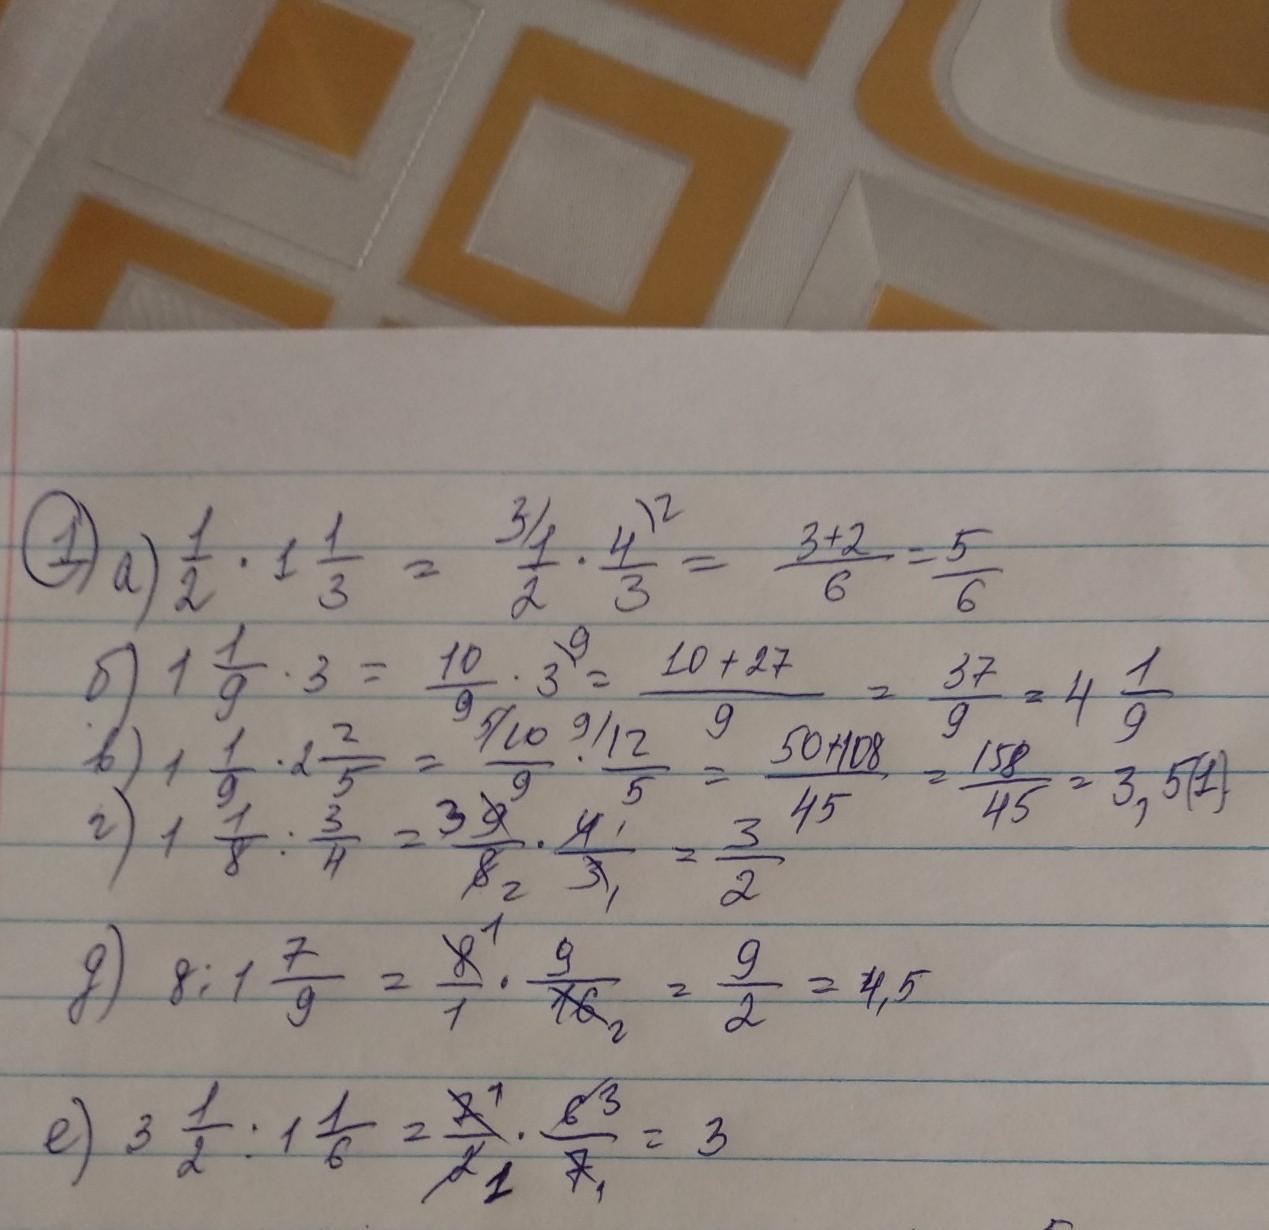 1) а) 1/2 · 1 1/3 = 3/ 1/2 · 4/3 \2 = 3+2/6 = 5/6
б) 1 1/9 · 3 = 10/9 · 3 \9 = 10+27/9 = 37/9 = 4 1/9
в) 1 1/9 · 2 2/5 = 5/ 10/9 · 9/ 12/5 = 50+108/45 = 158/45 = 3,5(1)
г) 1 1/8 : 3/4 = 3 9/8 2 · 4 1/3 1 = 3/2
д) 8 : 1 7/9 = 8 1/1 · 9/16 2 = 9/2 = 4,5
е) 3 1/2 : 1 1/6 = 7 1/2 1 · 6 3/7 1 = 3